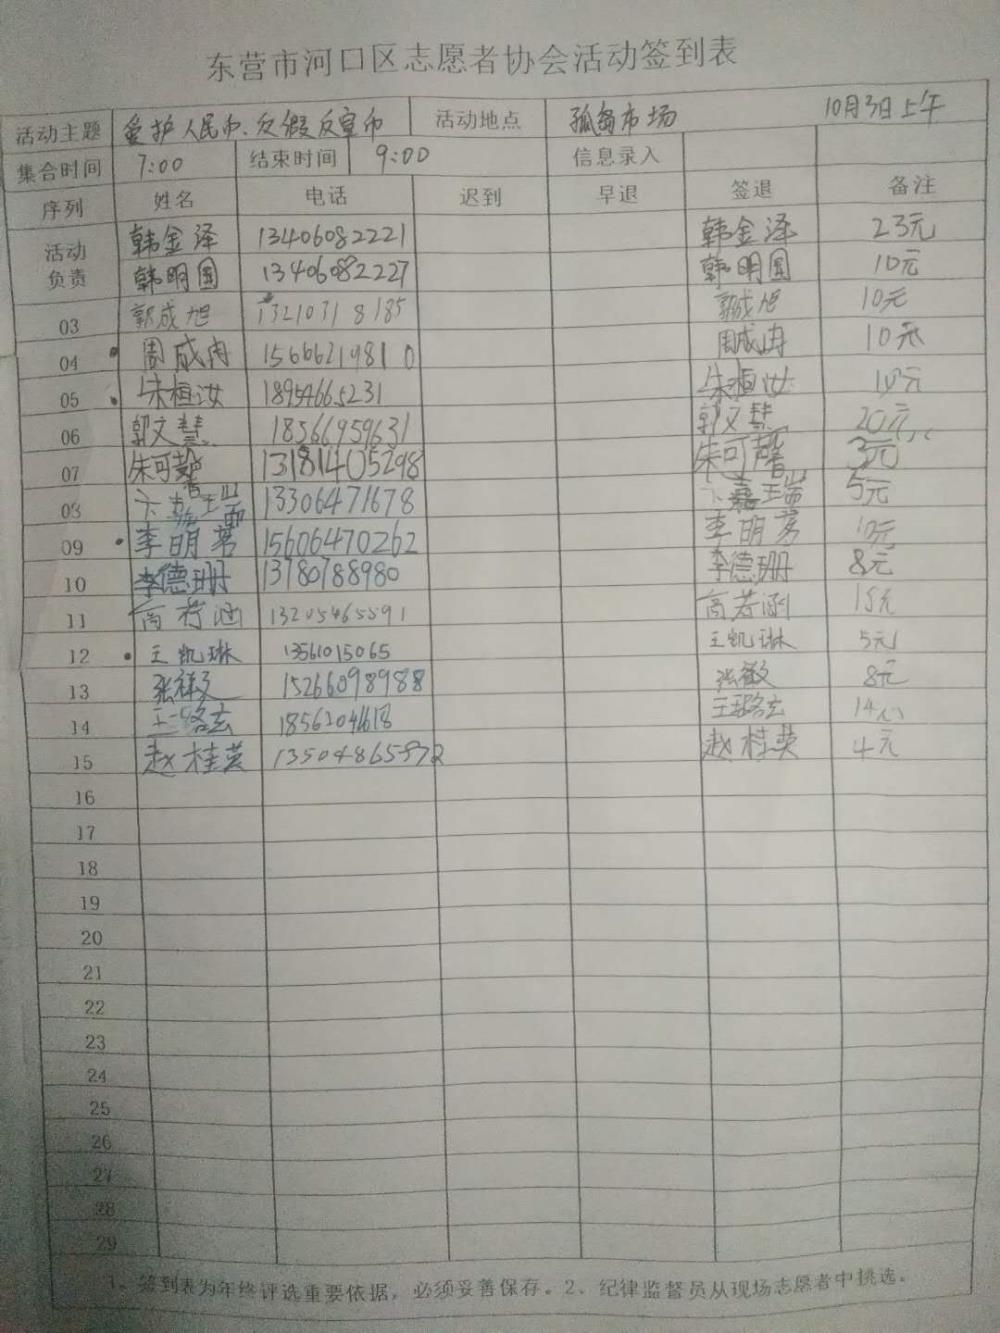 东营市河口区志愿者协会活动签到表
10月3日上午
活动主题 爱护人民币、反假反宣币 活动地点 孤岛市场
集合时间 7:00 结束时间 9:00 信息录入
序列 姓名 电话 迟到 早退 签退 备注
活动负责 韩金泽 13406082221 韩金泽 23元
韩明国 13406082227 韩明国 10元
03 郭成旭 13210318185 郭成旭 10元
04 周成冉 15666219810 周成冉 10元
05 朱桓汝 18954665231 朱桓汝 10元
06 郭文慧 18566959631 郭文慧 20元
07 朱可馨 13181405298 朱可馨 3元
08 卞嘉瑞 13306471678 卞嘉瑞 5元
09 李明茗 15606470262 李明茗 10元
10 李德珊 13780788980 李德珊 8元
11 高若涵 13205465591 高若涵 15元
12 王凯琳 13561015065 王凯琳 5元
13 张 15266098988 张 8元
14 王璐玄 18562041618 王璐玄 14元
15 赵桂英 13504865972 赵桂英 4元
16
17
18
19
20
21
22
23
24
25
26
27
28
29
1、签到表为年终评选重要依据，必须妥善保存。2、纪律监督员从现场志愿者中挑选。